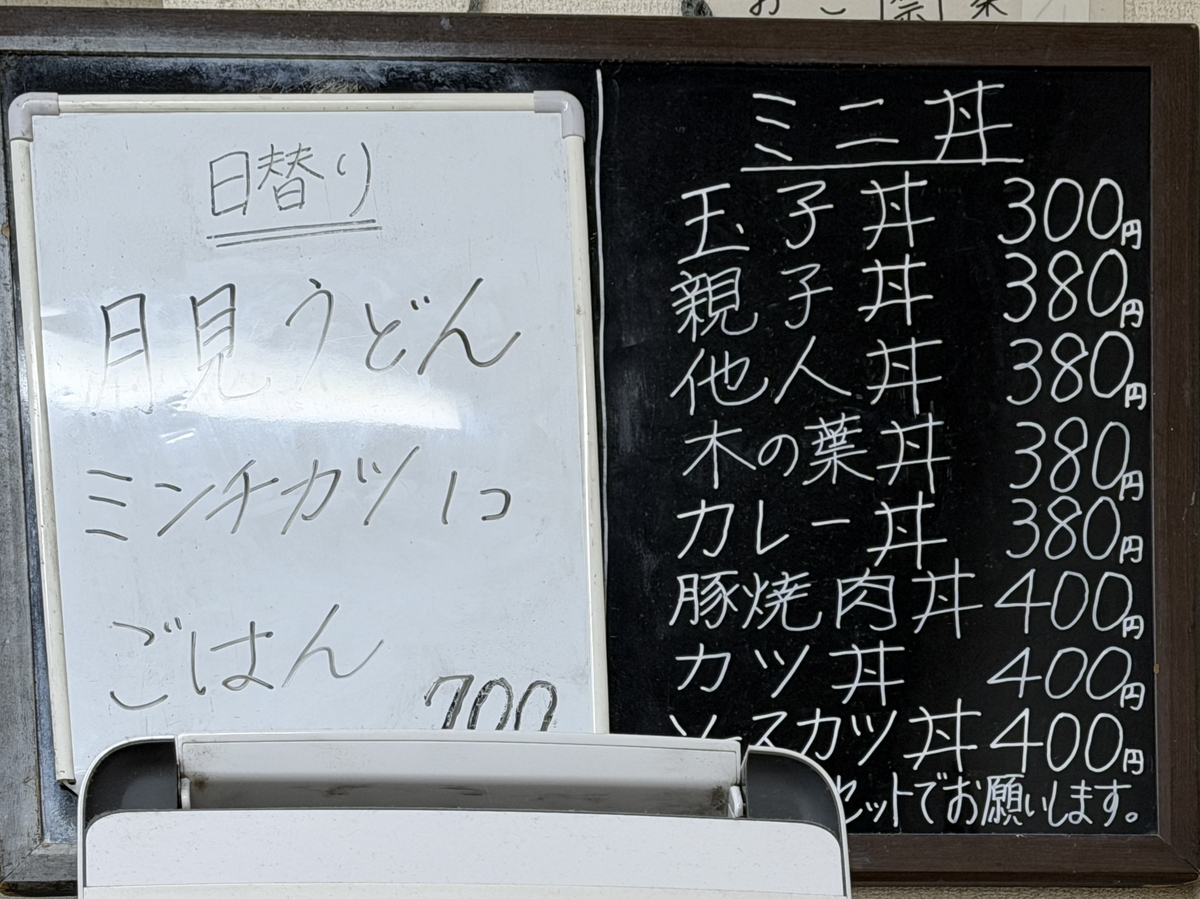 日替り
月見うどん
ミンチカツ1コ
ごはん
700
ミニ丼
玉子丼 300円
親子丼 380円
他人丼 380円
木の葉丼 380円
カレー丼 380円
豚焼肉丼 400円
カツ丼 400円
ソースカツ丼 400円
セットでお願いします。